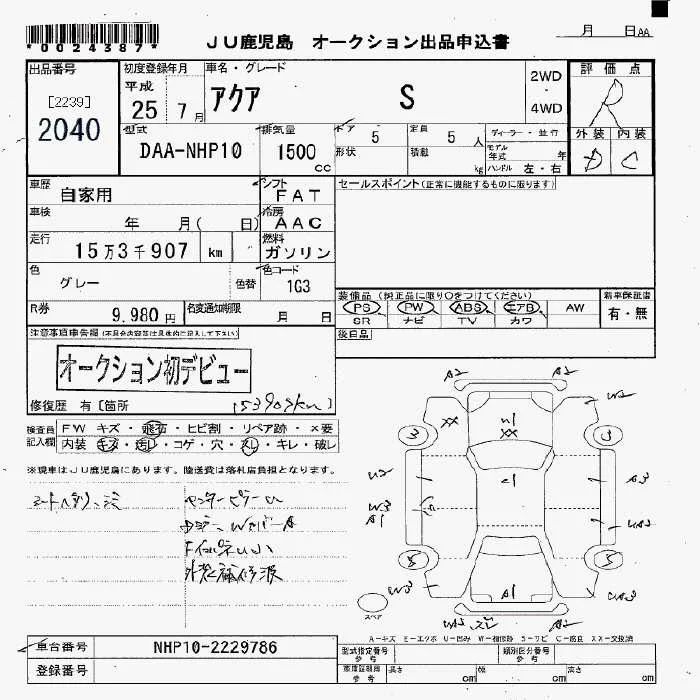 *0024387*
JU鹿児島 オークション出品申込書
月 日 AA
出品番号
[2239]
2040
初度登録年月
平成
25 7月
車名・グレード
アクア S
2WD
・
4WD
評価点
R
外装 内装
D C
型式
DAA-NHP10
排気量
1500
cc
ドア 5
形状
定員 5 人
積載 kg
ディーラー・並行
モデル年式 年
ハンドル 左・右
車歴 自家用
シフト FAT
車検 年 月( 日)
冷房 AAC
走行 15万3千907 km
燃料 ガソリン
色 グレー 色替
色コード 1G3
R券 9,980 円
名変通知期限 月 日
セールスポイント(正常に機能するものに限ります)
装備品(純正品に限り○をつけてください)
PS PW ABS エアB AW
SR ナビ TV カワ
新車保証書
有・無
後日品
注意事項車申告欄(不具合内容等は具体的に記入して下さい)
オークション初デビュー
修復歴 有[箇所
(153909km)
検査員記入欄
FW キズ・飛石・ヒビ割・リペア跡・×要
内装 キズ・汚レ・コゲ・穴・スレ・キレ・破レ
※現車はJU鹿児島にあります。陸送費は落札店負担となります。
A2
A2
W2
XX
W1
XX
3
3
U2
C1
A3
W3
A1
5
5
W3
A1
スペア
A-キズ E-エクボ U-凹み W-補修跡 S-サビ C-腐食 XX-交換済
車台番号 NHP10-2229786
登録番号
型式指定番号
参考
類別区分番号
参考
車庫証明用
参考
長さ cm
幅 cm
高さ cm